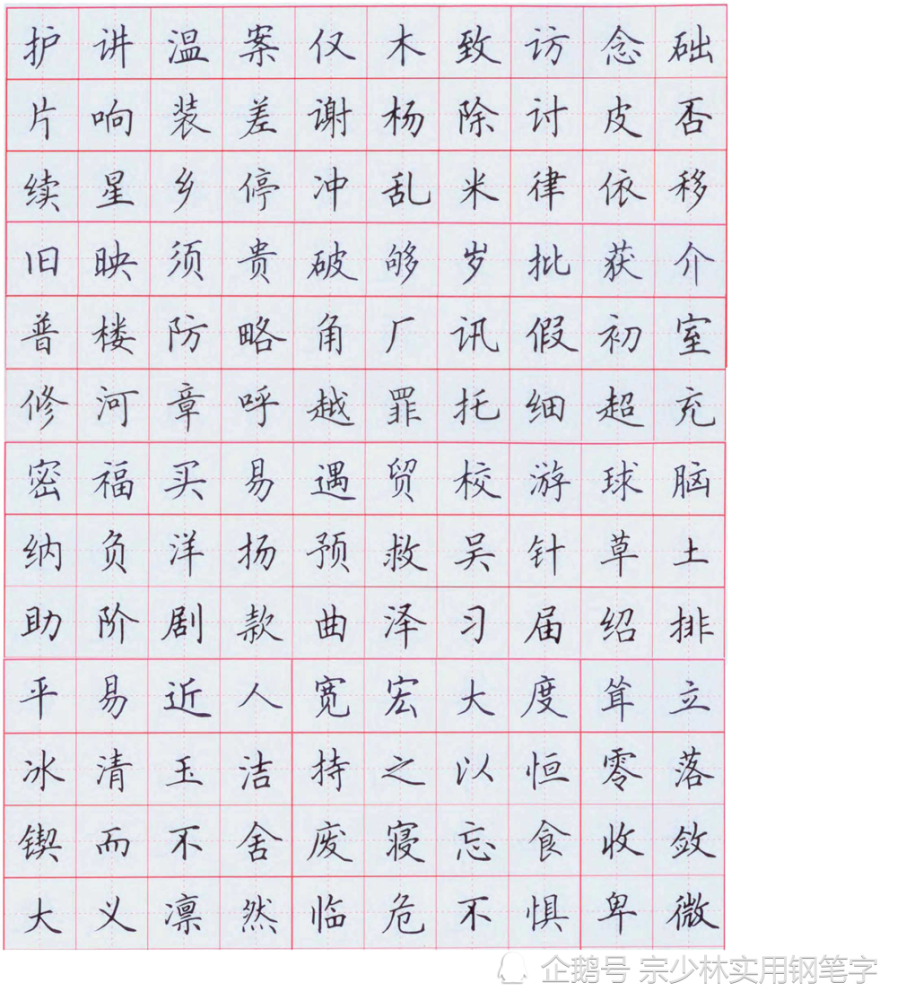 护讲温案仅木致访念础
片响装差谢杨除讨皮否
续星乡停冲乱米律依移
旧映须贵破够岁批获介
普楼防略角厂讯假初室
修河章呼越罪托细超充
密福买易遇贸校游球脑
纳负洋扬预救吴针草土
助阶剧款曲泽习届绍排
平易近人宽宏大度耸立
冰清玉洁持之以恒零落
锲而不舍废寝忘食收敛
大义凛然临危不惧卑微
企鹅号 宗少林实用钢笔字